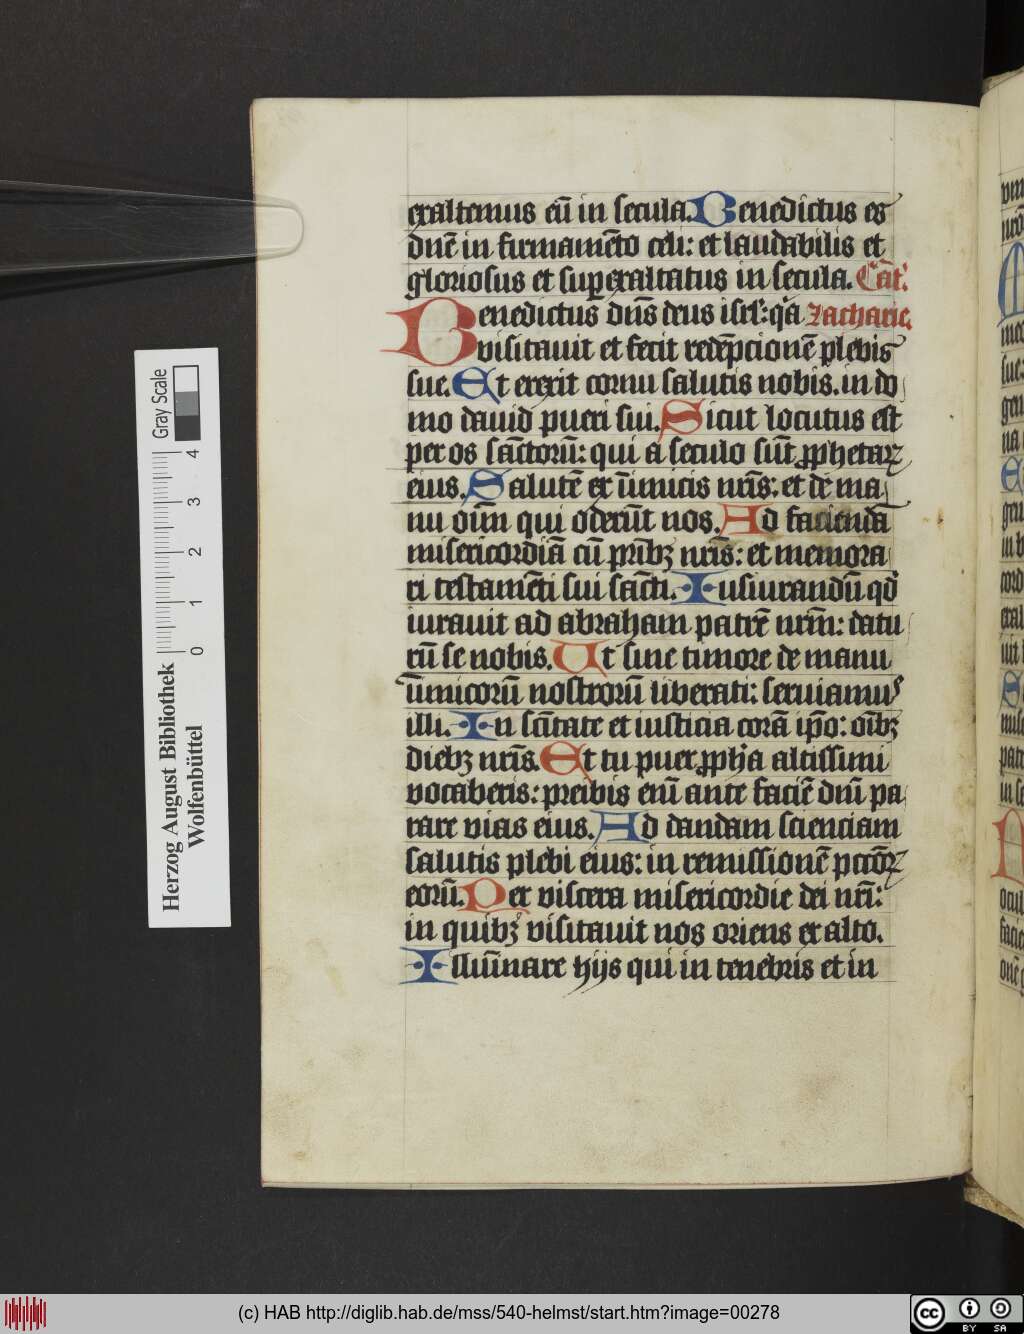 exaltemus eū in secula. Benedictus es
dn̄e in firmamēto celi: et laudabilis et
gloriosus et superexaltatus in secula. Cāt.
Benedictus dn̄s deus isrl̄: qͥa zacharie.
visitauit et fecit redēpcionē plebis
sue. Et erexit cornu salutis nobis. in do
mo dauid pueri sui. Sicut locutus est
per os sāctorū: qui a seculo sūt ꝓphetaꝝ
eius. Salutē ex īimicis nr̄is: et de ma
nu oīm qui oderūt nos. Ad faciendā
misericordiā cū pr̄ibꝫ nr̄is: et memora
ri testamēti sui sācti. Iusiurandū qd̓
iurauit ad abraham patrē nrm̄: datu
rū se nobis. Ut sine timore de manu
īimicorū nostrorū liberati: seruiamus
illi. In scītate et iusticia corā ip̄o: oībꝫ
diebꝫ nr̄is. Et tu puer ꝓph̄a altissimi
vocaberis: preibis enī ante faciē dnī pa
rare vias eius. Ad dandam scienciam
salutis plebi eius: in remissionē pccōꝝ
eorū. Per viscera misericordie dei nrī:
in quibꝫ visitauit nos oriens ex alto.
Illuīnare hijs qui in tenebris et in
Gray Scale
0 1 2 3 4
Herzog August Bibliothek
Wolfenbüttel
(c) HAB http://diglib.hab.de/mss/540-helmst/start.htm?image=00278
cc BY SA